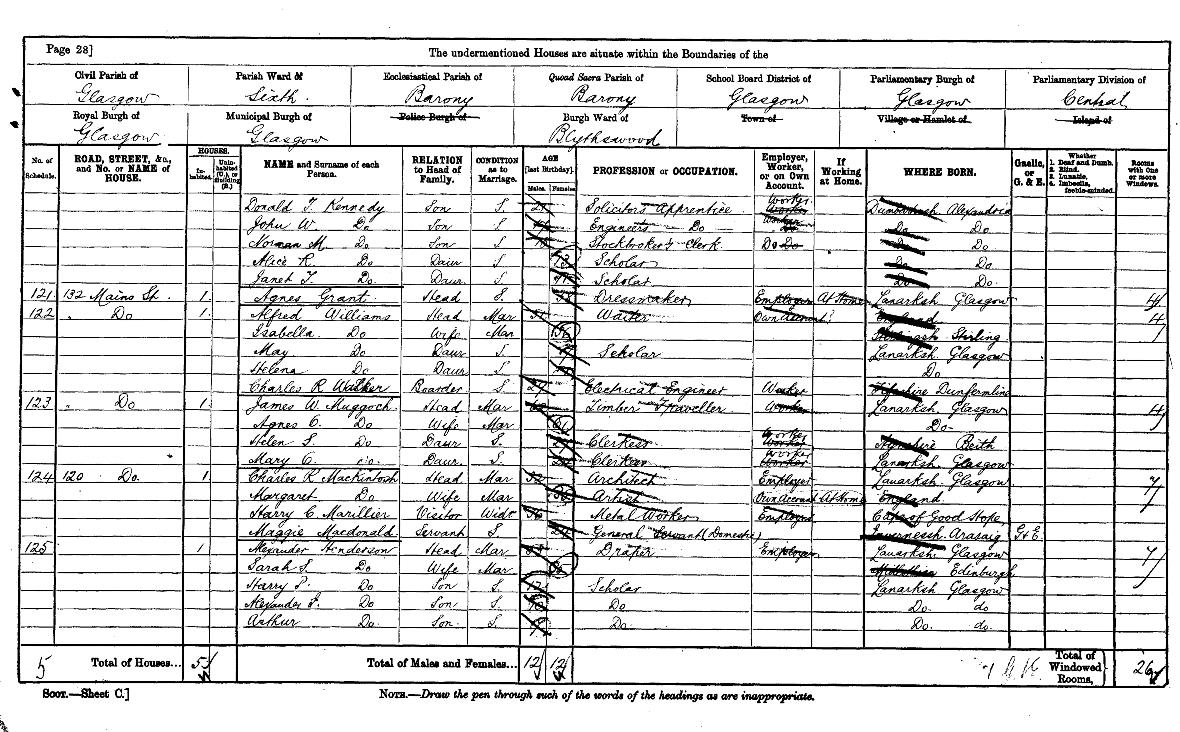 Page 28]
The undermentioned Houses are situate within the Boundaries of the
Civil Parish of Parish Ward of Ecclesiastical Parish of Quoad Sacra Parish of School Board District of Parliamentary Burgh of Parliamentary Division of
Glasgow Sixth. Barony Barony Glasgow Glasgow Central
Royal Burgh of Municipal Burgh of Police Burgh of Burgh Ward of Town of Village or Hamlet of Island of
Glasgow Glasgow Blythswood
No. of Schedule. ROAD, STREET, &c., and No. or NAME of HOUSE. HOUSES. Inhabited. Uninhabited (U.), or Building (B.) NAME and Surname of each Person. RELATION to Head of Family. CONDITION as to Marriage. AGE [last Birthday]. Males. Females. PROFESSION or OCCUPATION. Employer, Worker, or on Own Account. If Working at Home. WHERE BORN. Gaelic, or G. & E. Whether 1. Deaf and Dumb. 2. Blind. 3. Lunatic. 4. Imbecile, feeble-minded. Rooms with One or more Windows.
Donald T. Kennedy Son S. Solicitors Apprentice Worker Alexandria
John W. Do Son S. Engineers Do Worker Do Do
Norman M. Do Son S. Stockbroker's Clerk Do Do Do Do
Alice R. Do Daur S. 13 Scholar Do Do.
Janet T. Do. Daur. S. Scholar Do Do.
121 132 Mains St. 1. Agnes Grant Head S. Dressmaker Employer At Home Lanarksh Glasgow 4
122 " Do 1. Alfred Williams Head Mar Waiter Own Account England 4
Isabella Do Wife Mar Stirling
May Do Daur S. Scholar Lanarksh Glasgow
Helena Do Daur S. Do
Charles R Walker Boarder S. Electrical Engineer Worker Dunfermline
123 " Do 1. James W. Muggoch Head Mar Timber Traveller Worker Lanarksh Glasgow 4
Agnes C. Do Wife Mar Do
Helen S. Do Daur S. Clerkess Worker Ayrshire Beith
Mary C. do. Daur. S. Clerkess Worker Lanarksh Glasgow
124 120 Do. 1 Charles R Mackintosh Head Mar 32 Architect Employer Lanarksh Glasgow 7
Margaret Do Wife Mar Artist Own Account At Home England
Harry C. Marillier Visitor Widr Metal Worker Employer Cape of Good Hope
Maggie Macdonald Servant S. General Servant (Domestic) Invernessh. Arasaig G & E.
125 1 Alexander Henderson Head Mar. Draper Employer Lanarksh Glasgow 7
Sarah S. Do Wife Mar Edinburgh
Harry P. Do Son S. 12 Scholar Lanarksh Glasgow
Alexander F. Do Son S. Do Do. do
Arthur Do. Son. S. Do. Do. do.
5 Total of Houses... 5 Total of Males and Females... 12 12 Total of Windowed Rooms, 26
SCOT.—Sheet C.] NOTE.—Draw the pen through such of the words of the headings as are inappropriate.